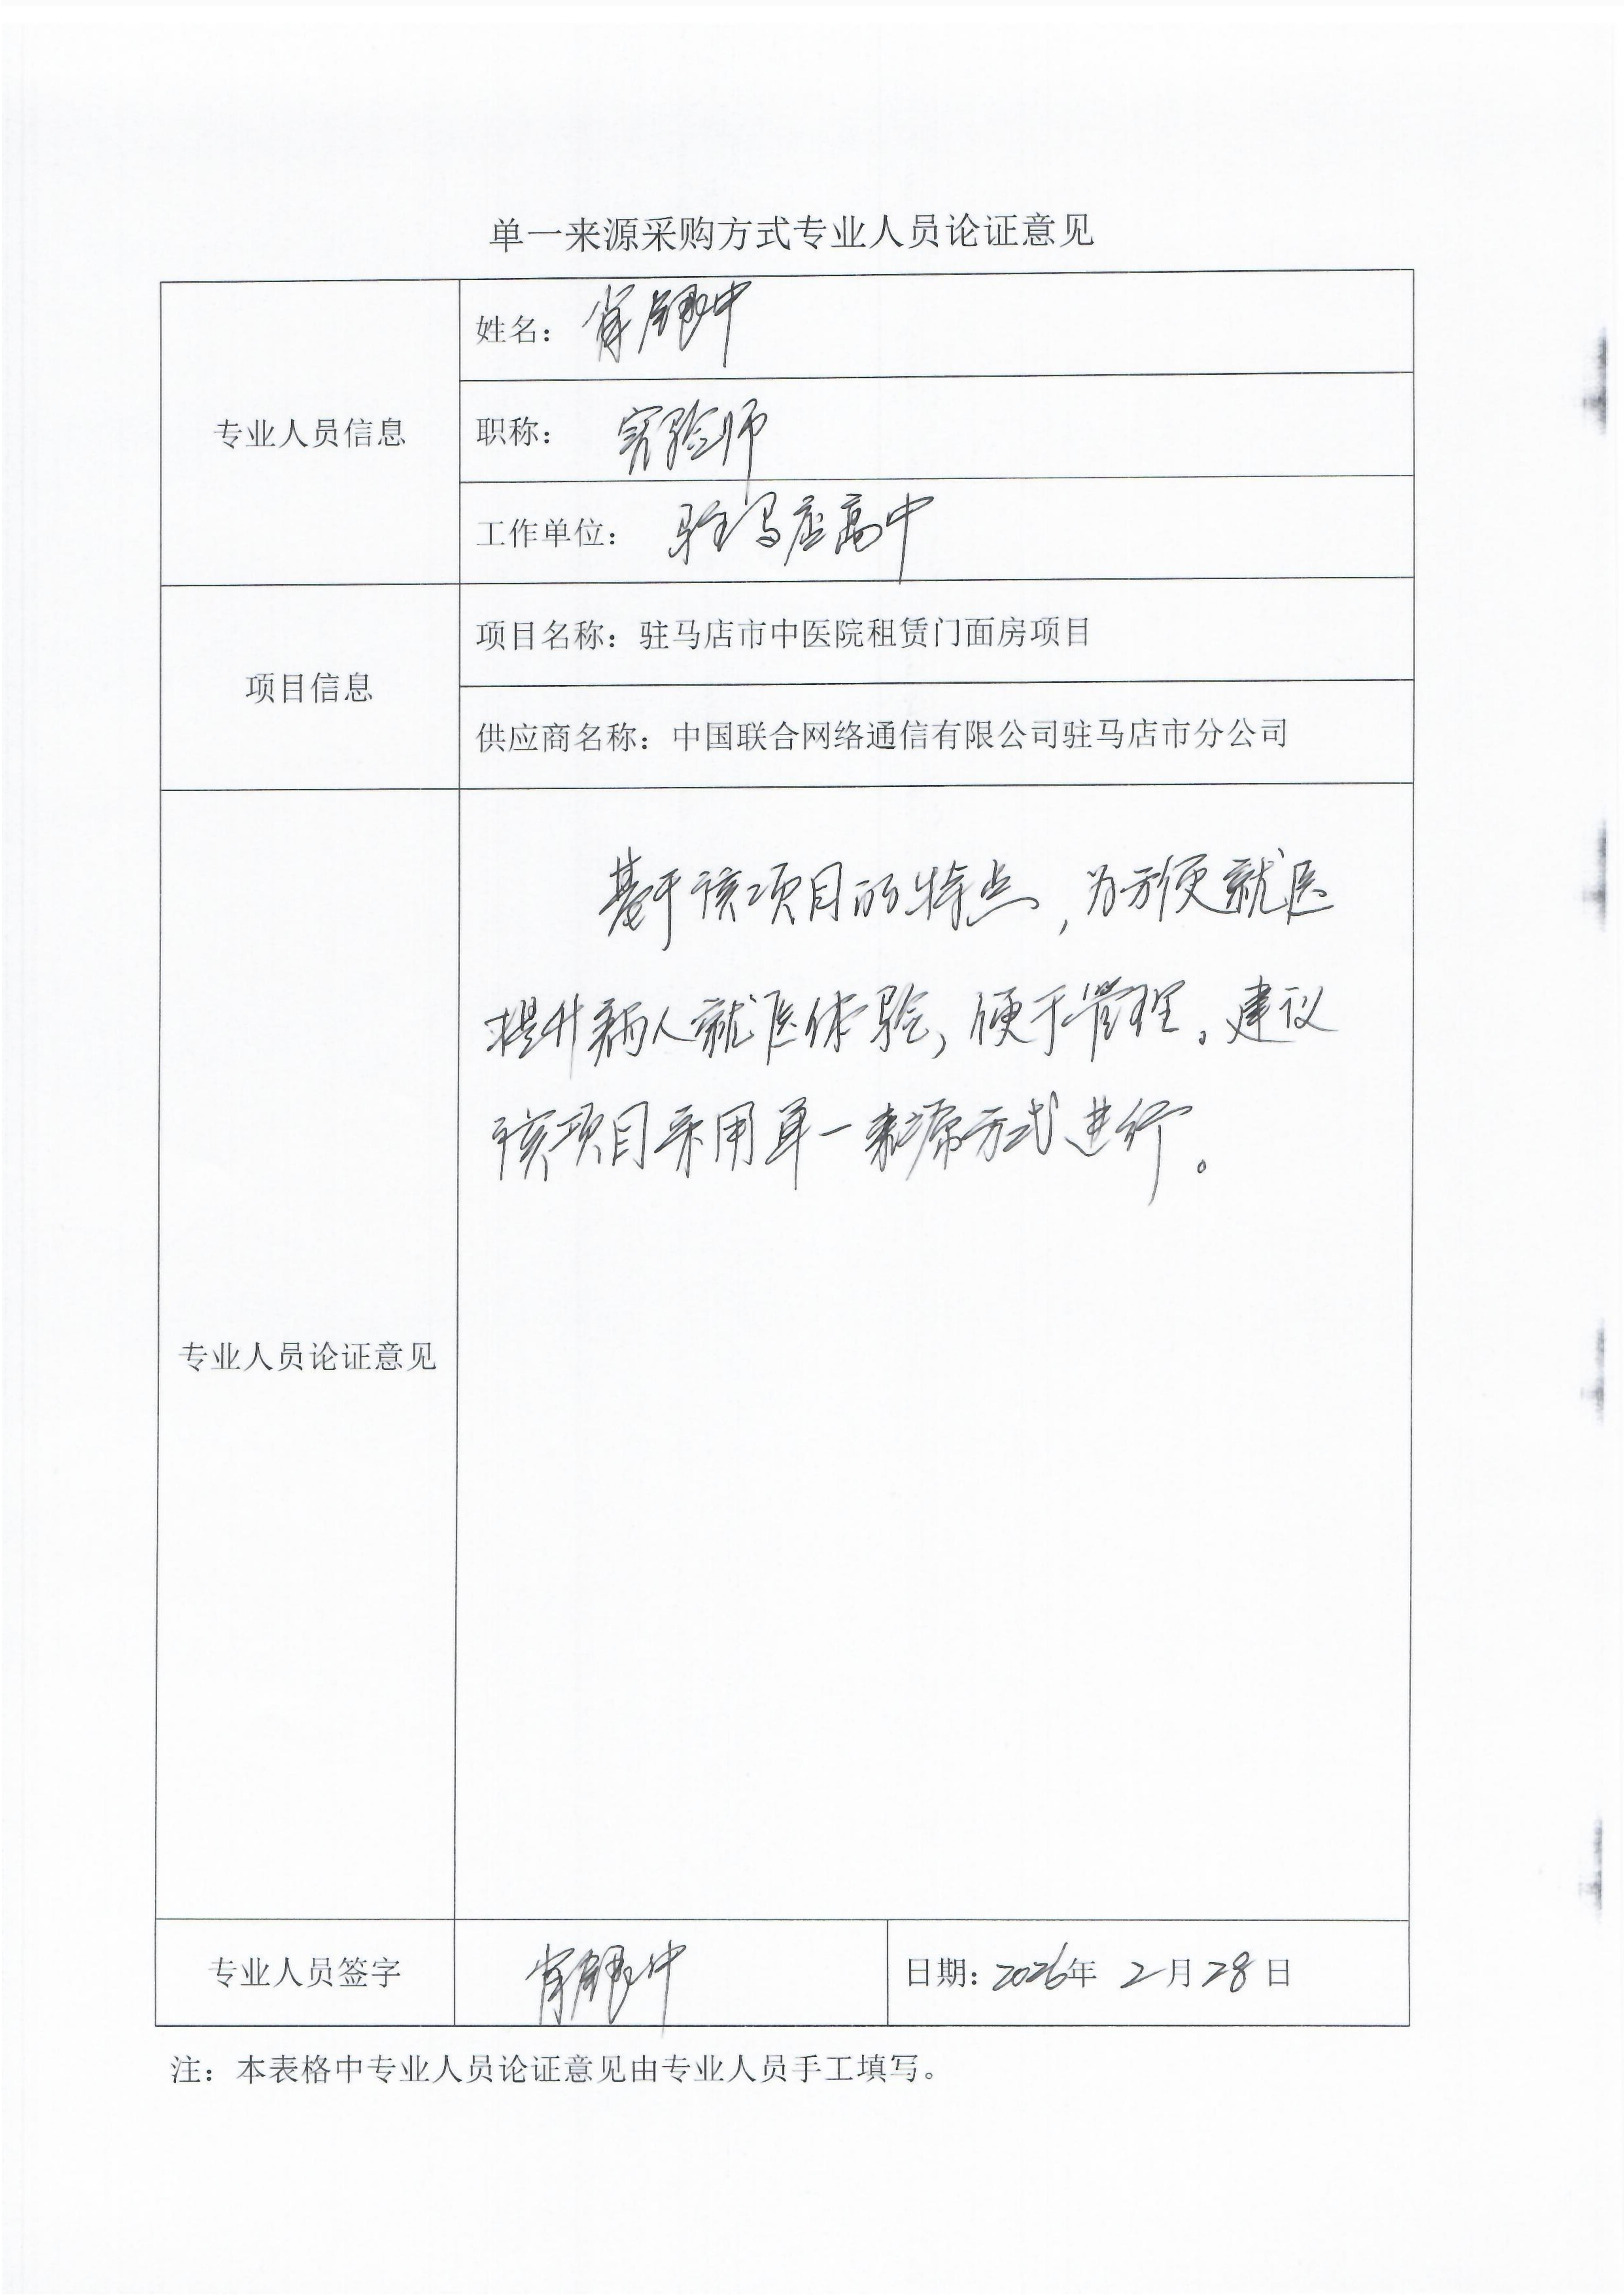 单一来源采购方式专业人员论证意见
专业人员信息
姓名：肖银中
职称：实验师
工作单位：驻马店高中
项目信息
项目名称：驻马店市中医院租赁门面房项目
供应商名称：中国联合网络通信有限公司驻马店市分公司
专业人员论证意见
基于该项目的特点，为方便就医
提升病人就医体验，便于管理。建议
该项目采用单一来源方式进行。
专业人员签字
肖银中
日期：2026年 2月28日
注：本表格中专业人员论证意见由专业人员手工填写。